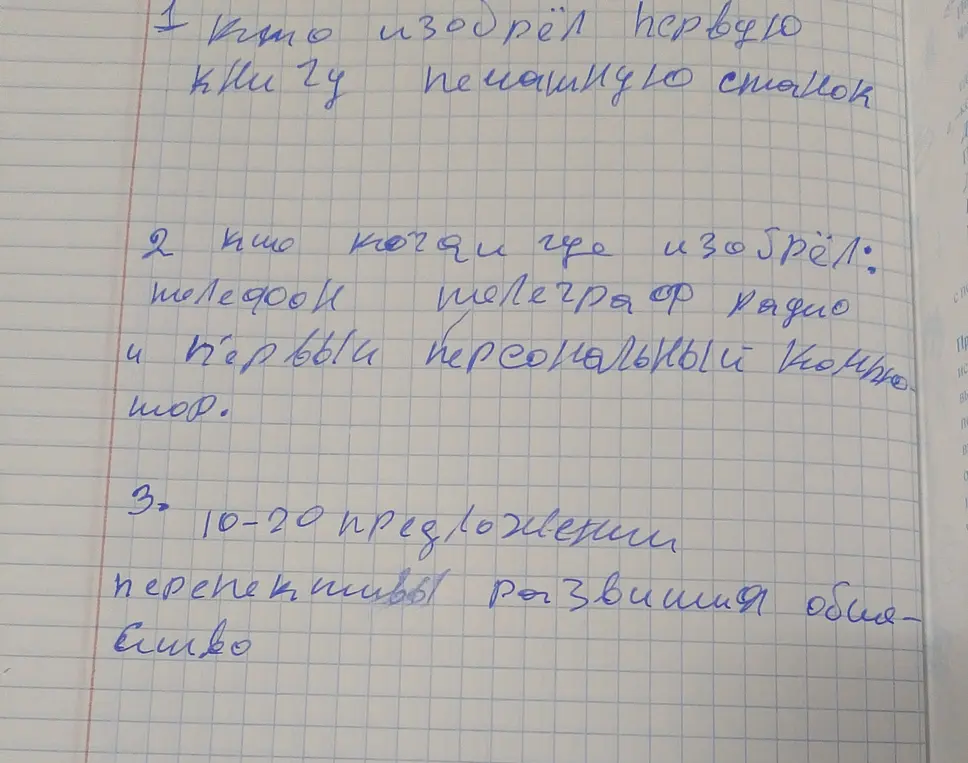 1 кто изобрёл первую
книгу печатную станок
2 кто когда и где изобрёл:
телефон телеграф радио
и первый персональный компью-
тор.
3. 10-20 предложении
перспективы развития обще-
ство